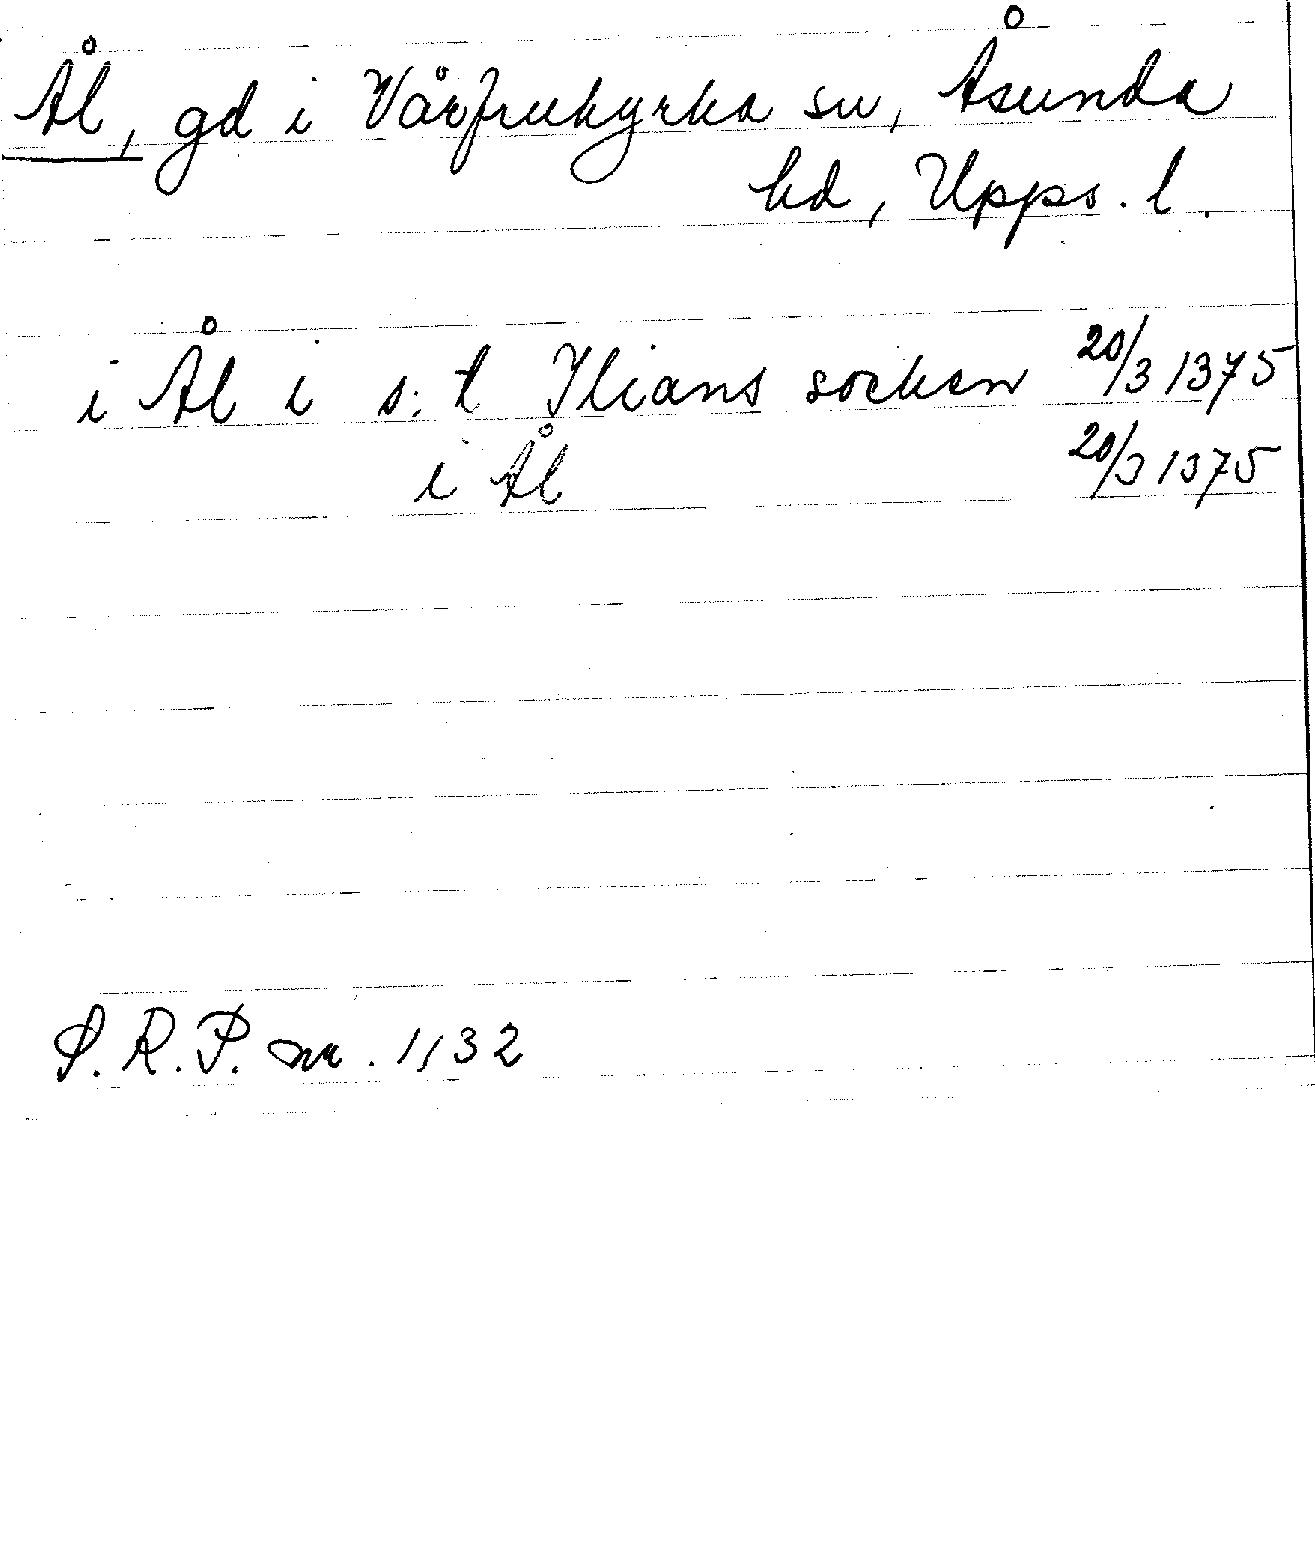 Ål, gd i Vårfrukyrka sn, Åsunda
hd, Upps. l.
i Ål i s:t Ilians socken 20/3 1375
i Ål 20/3 1375
S.R.P. nr. 1132